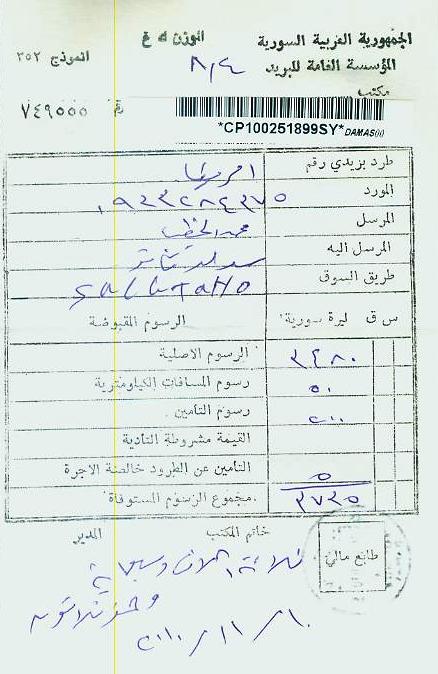 الجمهورية العربية السورية
المؤسسة العامة للبريد
مكتب
الوزن ك غ
٨/٤
النموذج ٣٥٢
رقم ٧٤٩٥٥٥
*CP100251899SY* DAMAS(II)
طرد بريدي رقم امريكا
المورد ٠٩٣٣٢٨٤٣٧٥
المرسل محمد الخطيب
المرسل اليه
طريق السوق
س ق ليرة سورية الرسوم المقبوضة
الرسوم الاصلية ٣٤٨٠
رسوم المسافات الكيلومترية ٥٠
رسوم التأمين ٢٠٠
القيمة مشروطة التأدية
التأمين عن الطرود خالصة الاجرة ٥
مجموع الرسوم المستوفاة ٣٧٣٥
طابع مالي
خاتم المكتب
المدير
ثلاثة آلاف وسبعمائة
وخمس ثلاثون
٢٠١٠/١١/١٠